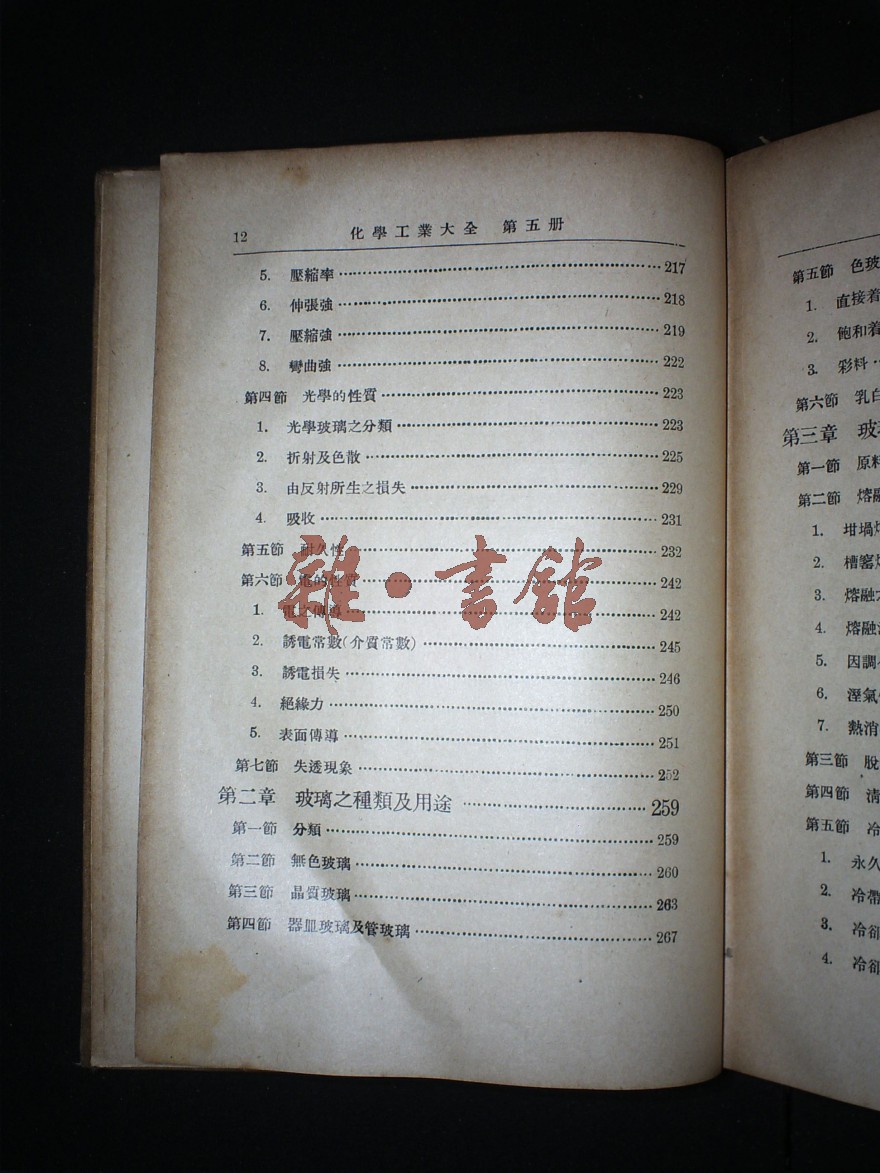 12 化學工業大全 第五册
5. 壓縮率 217
6. 伸張強 218
7. 壓縮強 219
8. 彎曲強 222
第四節 光學的性質 223
1. 光學玻璃之分類 223
2. 折射及色散 225
3. 由反射所生之損失 229
4. 吸收 231
第五節 耐久性 232
第六節 電的性質 242
1. 電之傳導 242
2. 誘電常數(介質常數) 245
3. 誘電損失 246
4. 絕緣力 250
5. 表面傳導 251
第七節 失透現象 252
第二章 玻璃之種類及用途 259
第一節 分類 259
第二節 無色玻璃 260
第三節 晶質玻璃 263
第四節 器皿玻璃及管玻璃 267
雜·書館
第五節 色玻
1. 直接着
2. 飽和着
3. 彩料
第六節 乳白
第三章 玻
第一節 原料
第二節 熔融
1. 坩堝
2. 槽窰
3. 熔融
4. 熔融
5. 因調
6. 溼氣
7. 熱消
第三節 脫
第四節 清
第五節 冷
1. 永久
2. 冷帶
3. 冷卻
4. 冷卻